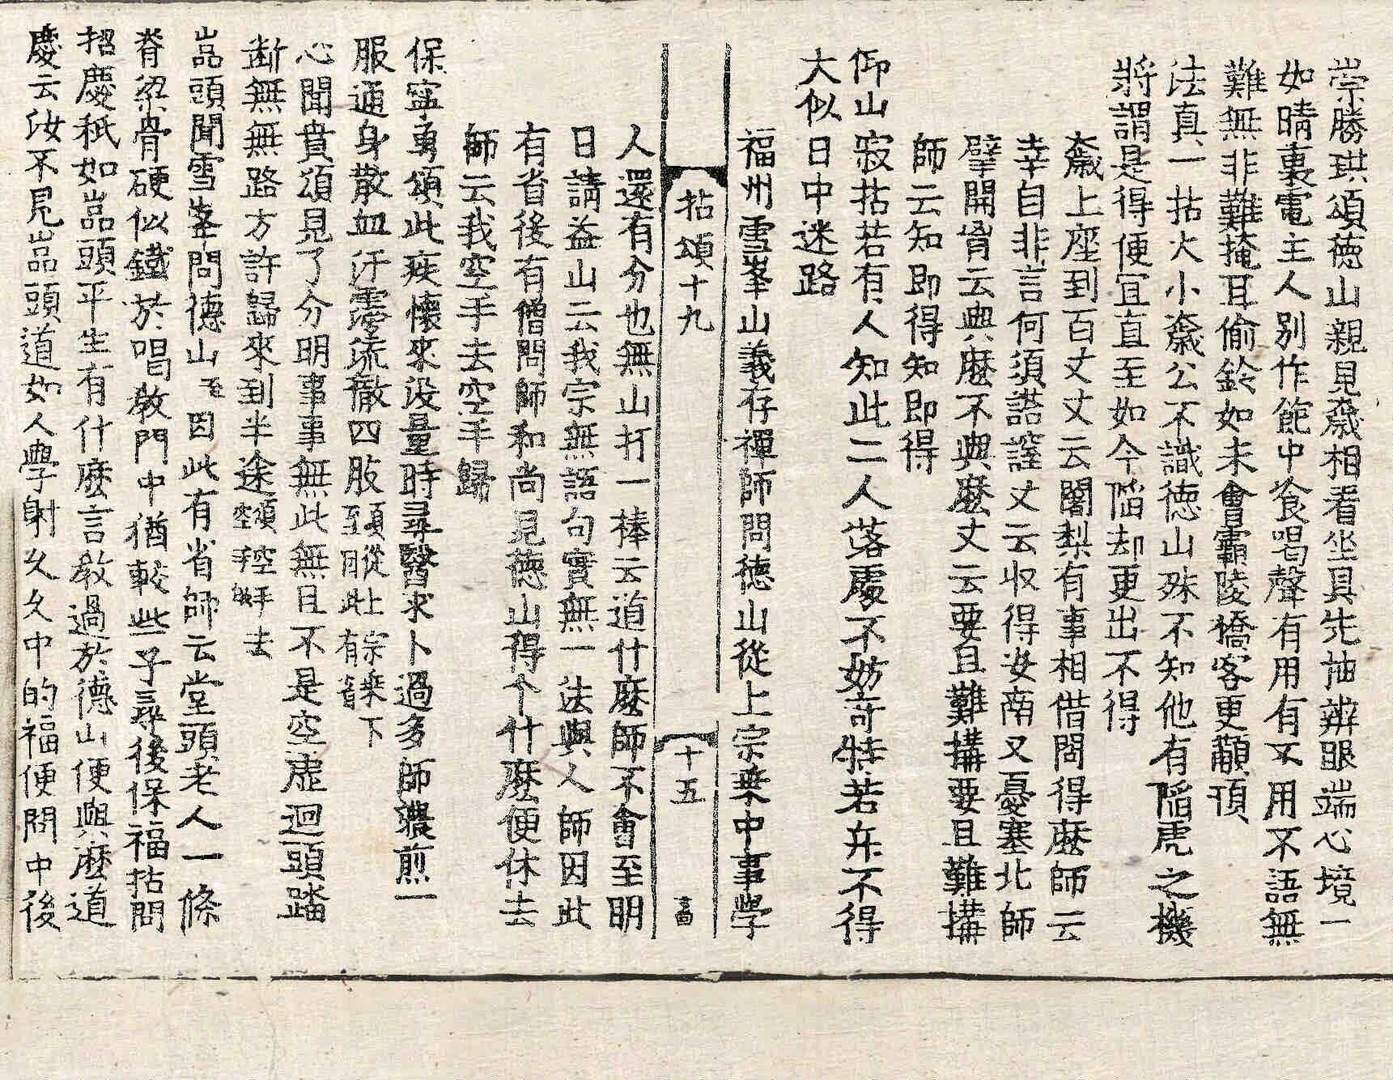 崇勝珙頌德山親見巖相看坐具先抽辨眼端心境一
如晴裏電主人別作䭃中飡喝聲有用有不用不語無
難無非難掩耳偷鈴如未會霸陵橋客更顢頇
法真一拈大小巖公不識德山殊不知他有陷虎之機
將謂是得便宜直至如今陷却更出不得
巖上座到百丈丈云闍梨有事相借問得麽師云
幸自非言何須譫䜧丈云収得安南又憂塞北師
擘開胷云與麽不與麽丈云要且難搆要且難搆
師云知即得知即得
仰山寂拈若有人知此二人落處不妨奇特若弁不得
大似日中迷路
福州雪峯山義存禪師問德山從上宗乗中事學
拈頌十九
十五
人還有分也無山打一棒云道什麽師不會至明
日請益山云我宗無語句實無一法與人師因此
有省後有僧問師和尚見德山得个什麽便休去
師云我空手去空手歸
保寧勇頌此疾懷來没量時尋醫求卜過多師濃煎一
服通身散血汗霶流徹四肢頌從上宗乗下至因此有省
心聞賁頌見了分明事事無此無且不是空虛迴頭踏
断無無路方許歸來到半途頌空手去空手歸
嵓頭聞雪峯問德山至因此有省師云堂頭老人一條
脊梁骨硬似鐵於唱敎門中猶較些子尋後保福拈問
招慶秖如嵓頭平生有什麽言敎過於德山便與麽道
慶云汝不見嵓頭道如人學射久久中的福便問中後